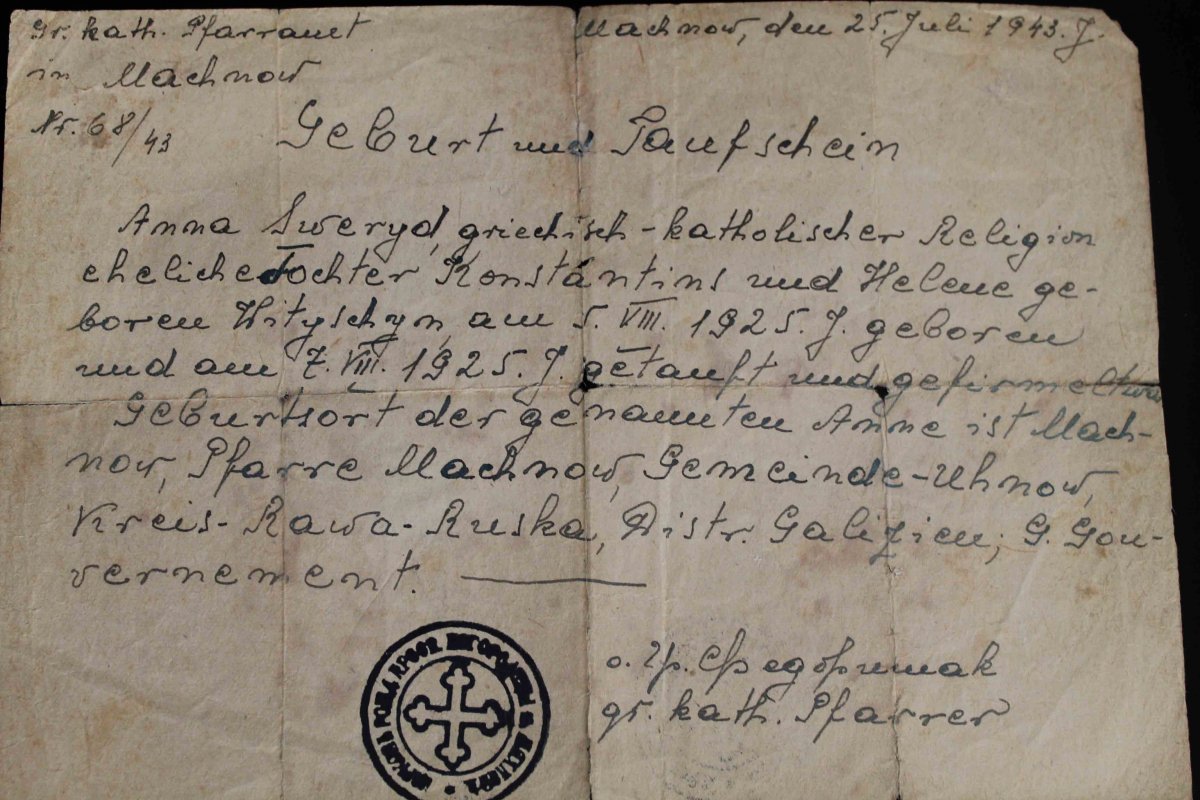 Gr. kath. Pfarramt
in Machnow
Machnow, den 25. Juli 1943. J.
Nr. 68/43
Geburt und Taufschein
Anna Sweryd, griechisch-katholischer Religion
eheliche Tochter Konstantins und Helene ge-
boren Hityschyn, am 5. VIII. 1925. J. geboren
und am 7. VIII. 1925. J. getauft und gefirmelt
Geburtsort der genannten Anne ist Mach-
now, Pfarre Machnow, Gemeinde-Uhnow,
Kreis-Rawa-Ruska, Distr. Galizien; G. Gou-
vernement.
о. Гр. Федоришак
gr. kath. Pfarrer